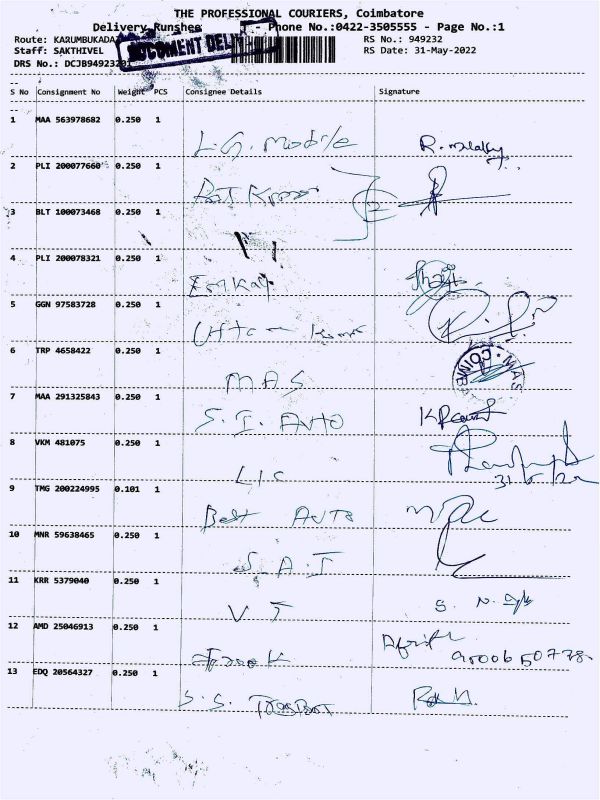 THE PROFESSIONAL COURIERS, Coimbatore
Delivery Runshee T - Phone No.:0422-3505555 - Page No.:1
Route: KARUMBUKADA RS No.: 949232
Staff: SAKTHIVEL RS Date: 31-May-2022
DOCUMENT DELIV
DRS No.: DCJB949232
S No Consignment No Weight PCS Consignee Details Signature
1 MAA 563978682 0.250 1
L.G. Mobile
2 PLI 200077660 0.250 1
3 BLT 100073468 0.250 1
4 PLI 200078321 0.250 1
Emkay
5 GGN 97583728 0.250 1
Uttam Kumar
6 TRP 4658422 0.250 1
M.A.S
MAS COIMB
7 MAA 291325843 0.250 1
S.I. Auto
8 VKM 481075 0.250 1
LIC
31/5/22
9 TMG 200224995 0.101 1
Best AUTO
10 MNR 59638465 0.250 1
S.A.I
11 KRR 5379040 0.250 1
V J
12 AMD 25046913 0.250 1
13 EDQ 20564327 0.250 1
S.S.